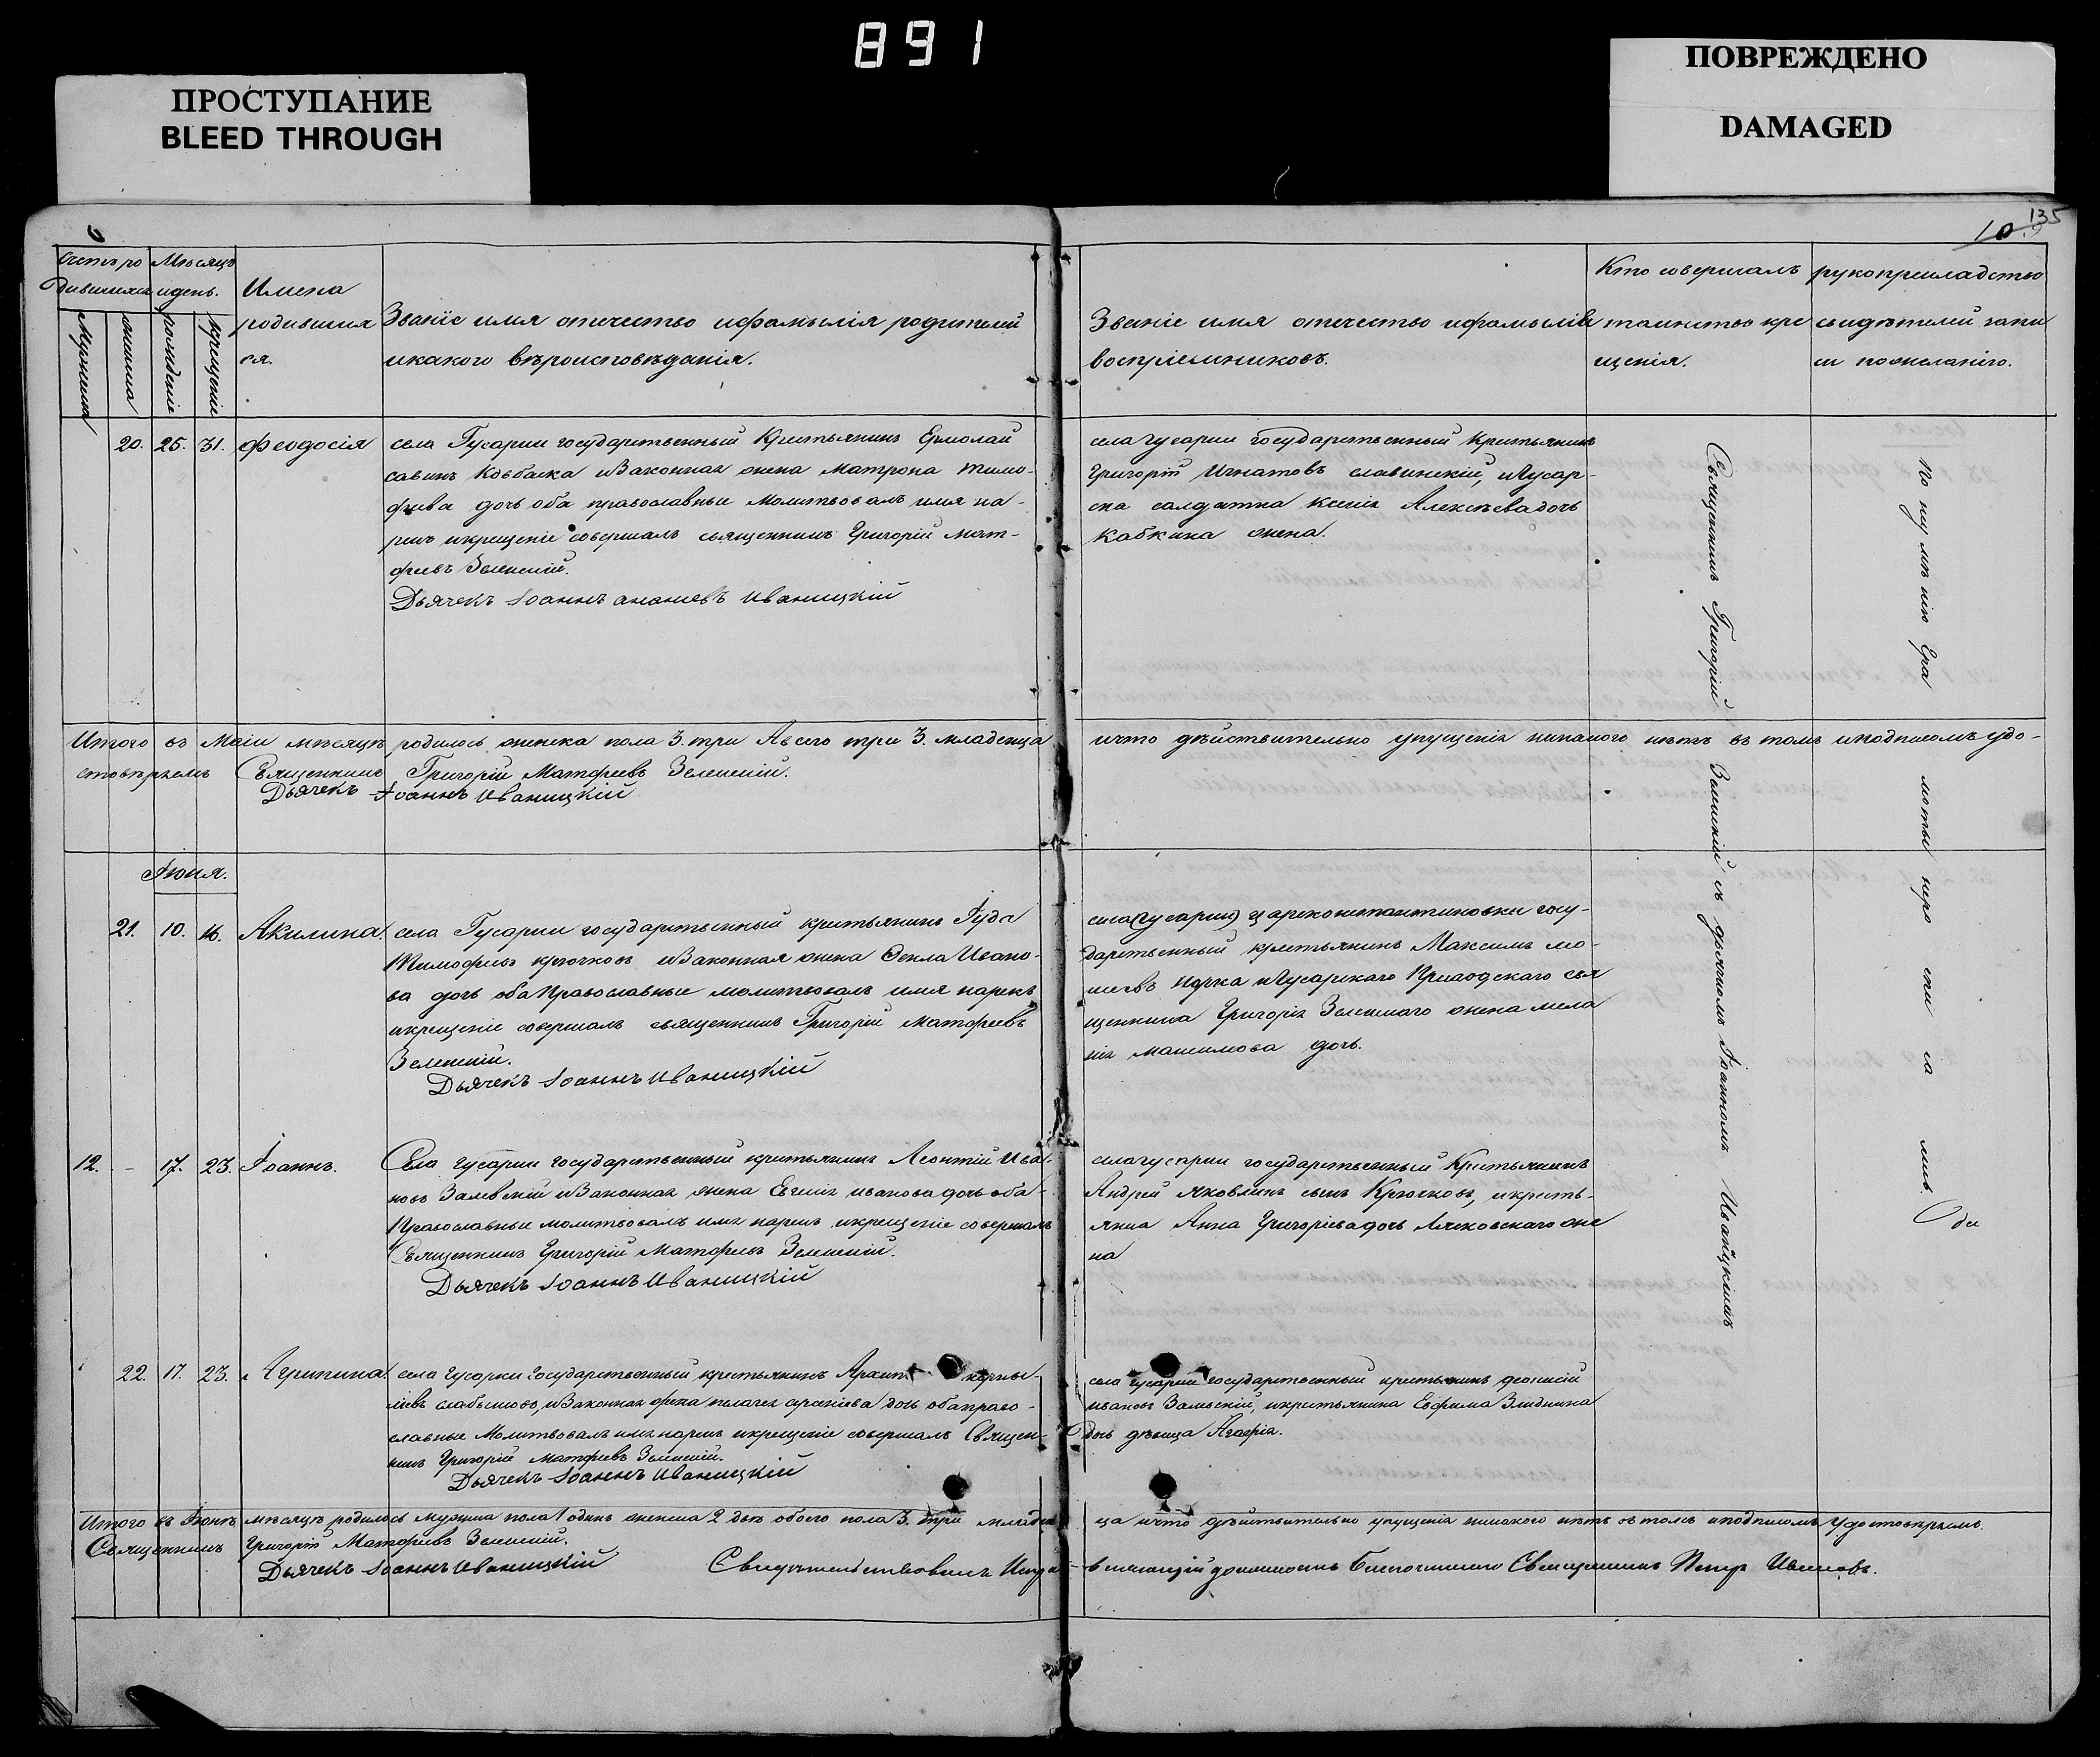 891
ПРОСТУПАНИЕ
BLEED THROUGH
ПОВРЕЖДЕНО
DAMAGED
135
10.
Счетъ ро
дившихся
Мѣсяцъ
и день.
Имена
родивших
ся.
Званіе имя отечество ифамылія родителей
икакого вѣроисповѣданія.
Званіе имя отечество ифамылія
воспріемниковъ.
Кто совершалъ
таинство кре
щенія.
рукоприкладство
свидѣтелей запи
си пожеланію.
Мужеска
женска
рожденіе
крещеніе
20. 25. 31. Феодосія
села Гусарки государственный Крестьянинъ Ермолай
савинъ иЗаконная жена Матрона тимо-
фѣева дочь оба православные Молитвовалъ имя на-
рекъ икрещеніе совершалъ священникъ Григорій мат-
фѣевъ Зеленскій.
Дьячекъ Іоаннъ ананіевъ Иваницкій
села гусарки государственный Крестьянинъ
Григорій Игнатовъ славинскій, иГусар-
ска салдатка Ксенія Алексѣева дочь
кабкина жена.
Итого въ Маіи мѣсяцѣ родилось женска пола 3. три Авсего три 3. младенца
ичто дѣйствительно упущенія никакого нѣтъ въ томъ иподписомъ удо-
стовѣряемъ Священникъ Григорій Матфѣевъ Зеленскій.
Дьячекъ Іоаннъ Иваницкій
Іюня.
21. 10. 16. Акилина.
села Гусарки государственный крестьянинъ Іуда
Тимофѣевъ крючковъ иЗаконная жена Фекла Ивано-
ва дочь оба Православные молитвовалъ имя нарекъ
икрещеніе совершалъ священникъ Григорій матфѣевъ
Зеленскій.
Дьячекъ Іоаннъ Иваницкій
села (гусарки) цареконстантиновки госу-
дарственный крестьянинъ Максимъ мо-
иГусарскаго Приходскаго свя
щенника Григорія Зеленскаго жена мела
нія максимова дочь.
12. - 17. 23. Іоаннъ.
Села гусарки государственный крестьянинъ Леонтій Ива-
новъ Залевскій иЗаконная жена Евгенія иванова дочь оба-
Православные молитвовалъ имя нарекъ икрещеніе совершалъ
Священникъ Григорій Матфѣевъ Зеленскій.
Дьячекъ Іоаннъ Иваницкій
села гусарки государственный Крестьянинъ
Андрей яковлевъ сынъ Крючковъ, икресть-
янка Анна Григоріева дочь Лясковскаго же
на
22. 17. 23. Агрипина.
села гусарки государственный крестьянинъ
иЗаконная жена арсеніева дочь обаправо-
славные Молитвовалъ имя нарекъ икрещеніе совершалъ Священ-
никъ Григорій Матфѣевъ Зеленскій.
Дьячекъ Іоаннъ Иваницкій
села гусарки государственный крестьянинъ
ивановъ Залевскій, икрестьянина Евфима
дочь дѣвица Агафія.
Итого въ Іюнѣ мѣсяцѣ родилось мужеска пола 1 одинъ женска 2 двѣ обоего пола 3. три младен
ца ичто дѣйствительно упущенія никакого нѣтъ въ томъ иподписомъ Удостовѣряемъ.
Священникъ Григорій Матфѣевъ Зеленскій.
Дьячекъ Іоаннъ Иваницкій
Свидѣтельствовалъ Испра-
вляющій должность Благочиннаго Священникъ Петръ Ивановъ.
Священникъ Григорій Зеленскій съ дьячкомъ Іоанномъ Иваницкимъ
По неу мѣ нію Гра моты неро спи са лись. Обы